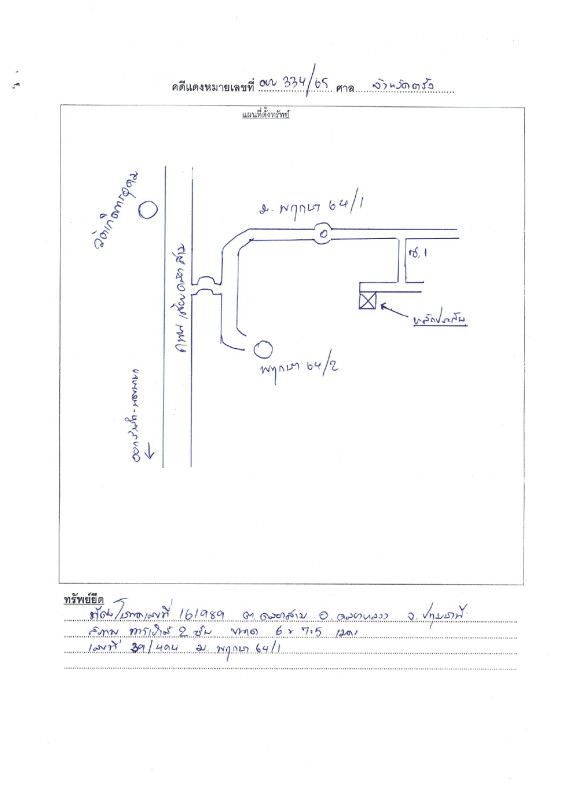 คดีแดงหมายเลขที่ ผบ 334/65 ศาล จังหวัดตรัง
แผนที่ตั้งทรัพย์
ม. พฤกษา 64/1
ซ.1
ถนน เลียบคลองสาม
พฤกษา 64/2
ทรัพย์ยึด
ที่ดิน/โฉนดเลขที่ 161989 ต. คลองสาม อ. คลองหลวง จ. ปทุมธานี
สภาพ ทาวเฮ้าส์ 2 ชั้น ขนาด 6 x 7.5 เมตร
เลขที่ 39/494 ม. พฤกษา 64/1